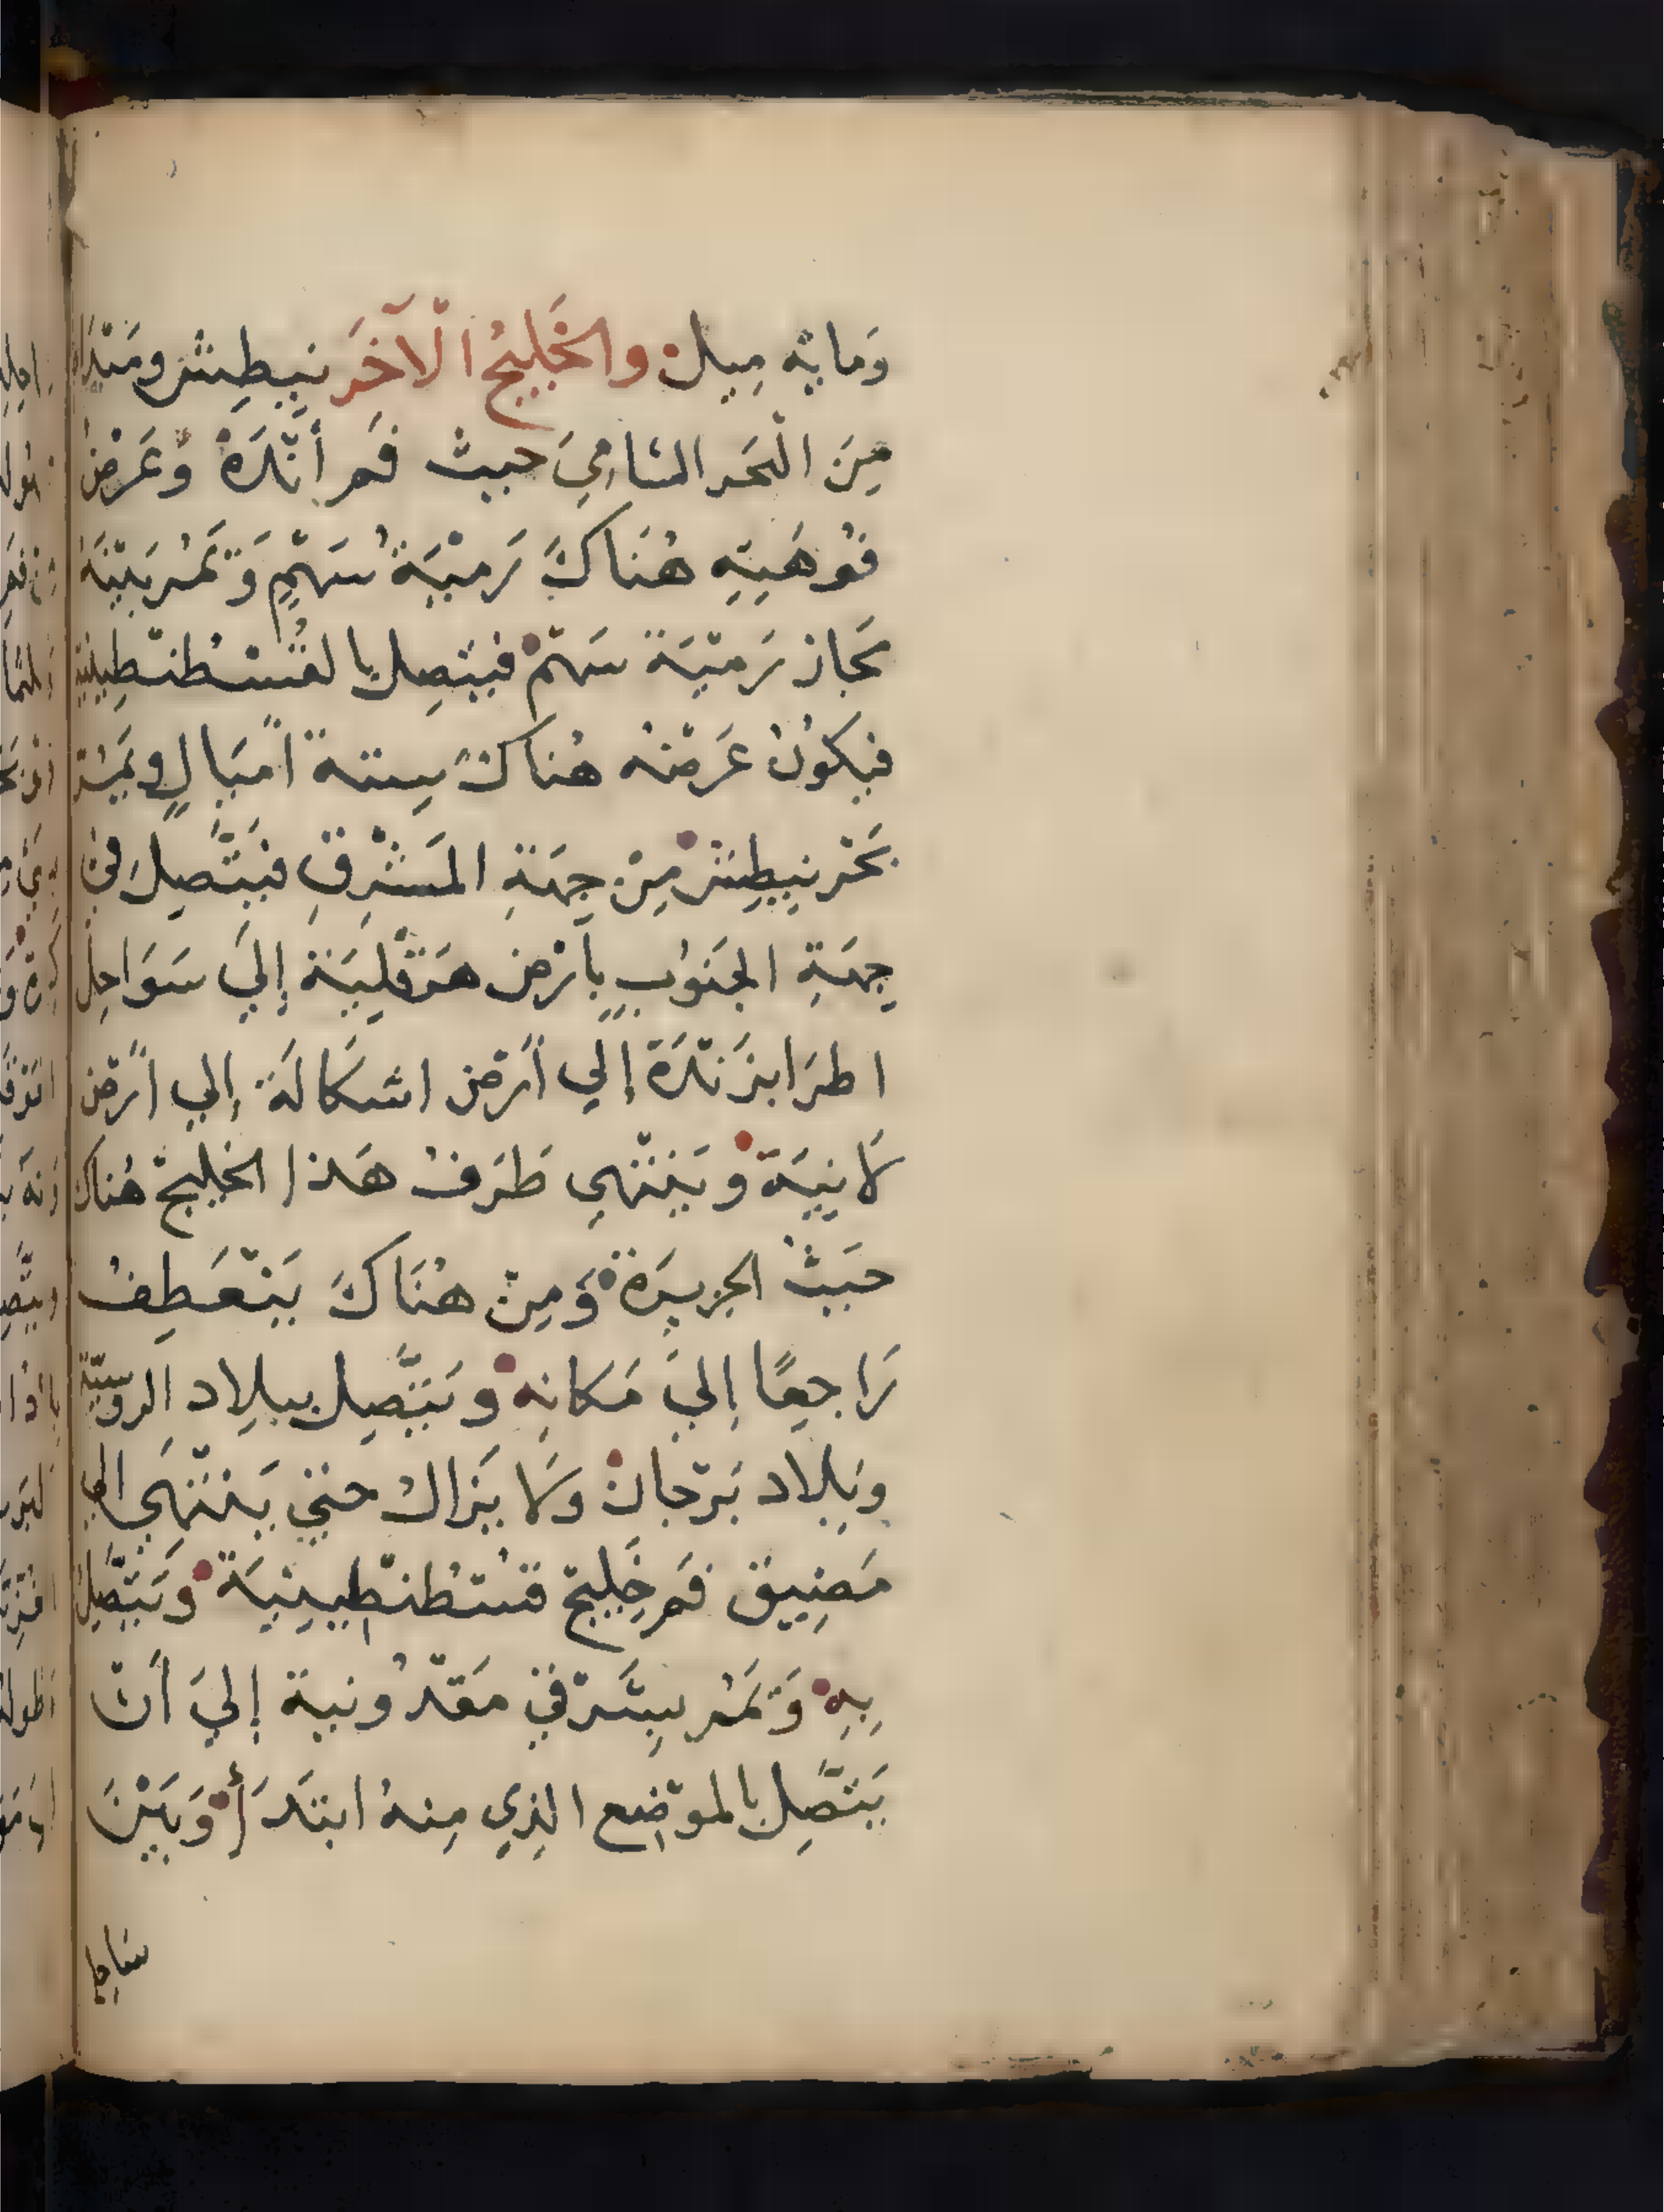 وَمايَة مِيل والخَلِيجُ الْآخَرَ نِيطِش ومَبْدَاه
مِنَ الْبَحَر الشامِيَ حيث فَم أَبْدَهْ وَعَرْضُ
فُوهَتِهِ هُنَاكَ رَمْيَةُ سَهْمٍ وَتَمُر بَيْنَهُ
مَجَاز رَمْيَة سَهْمْ فيَتَصِل بالقُسْطُنْطِينِية
فيكونُ عَرضهُ هُناكَ سِتة أَمْيَالٍ ويَمُر
بَحْر نِيطِش مِنْ جِهَةِ المَشْرِقِ فيَتَّصِل في
جِهَةِ الجَنوُبِ بِأَرْض هَرَقْلِيَة إِلَى سَوَاحِل
اطرَابزَنْدَة إِلي أَرْض اشكَالَة إِلي أَرْض
لَانِيَة ويَنْتَهِي طَرَفُ هَذا الخليجْ هُناك
حَيَثْ الخزريَة وَمِنْ هُنَاكَ يَنْعَطِفُ
رَاجِعًا إِليَ مَكَانِه ويَتَّصِل بِبلِاد الروسيّة
وبَلِاد بَرْجان وَلا يَزالْ حتي يَنْتَهِي الي
مَضِيق فَم خَلِيج قسْطُنْطِينِيَة وَيَتَّصِلُ
بِهِ وَتَمُر بِشَرْقِي مَقْدُونية إِليَ أَنْ
يَتَّصِلَ بالموْضِع الذِي مِنهُ ابتَدَأَ وَبَيْنَ
ساحل